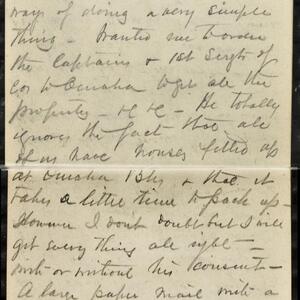 way of doing a very simple
thing - Wanted me to order
the Captains & 1st Sergts of
Cos to Omaha to get all the
property - &c &c - He totally
ignores the fact that all
of us have houses fitted up
at Omaha Bks & that it
takes a little time to pack up -
However I don't doubt but I will
get every thing all right -
with or without his consent -
A large paper mail with a